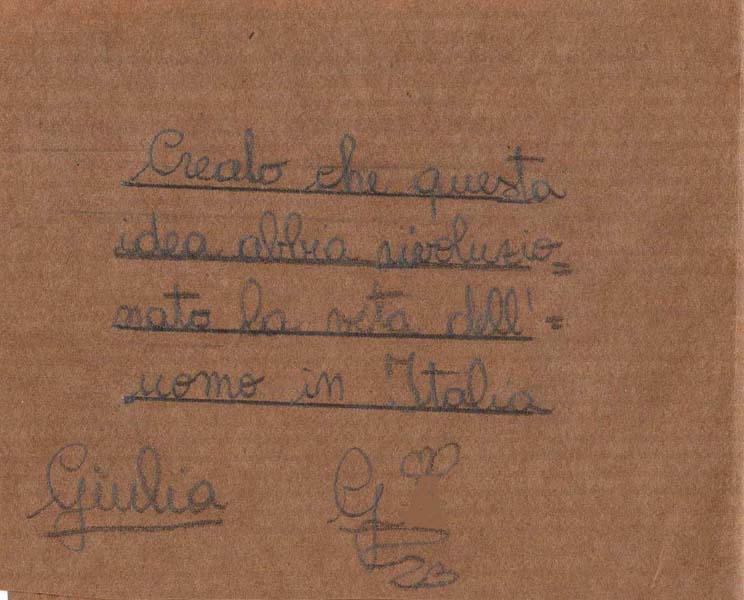 Credo che questa
idea abbia rivoluzio=
nato la vita dell'=
uomo in Italia
Giulia G